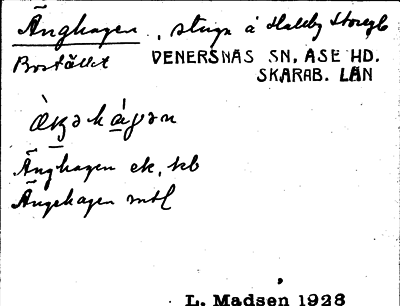 Änghagen, stuga å Halleby Storegb
Bostället VENERSNÄS SN. ÅSE HD.
SKARAB. LÄN
Änghagen ek, kb
Ängehagen mtl
L. Madsen 1928